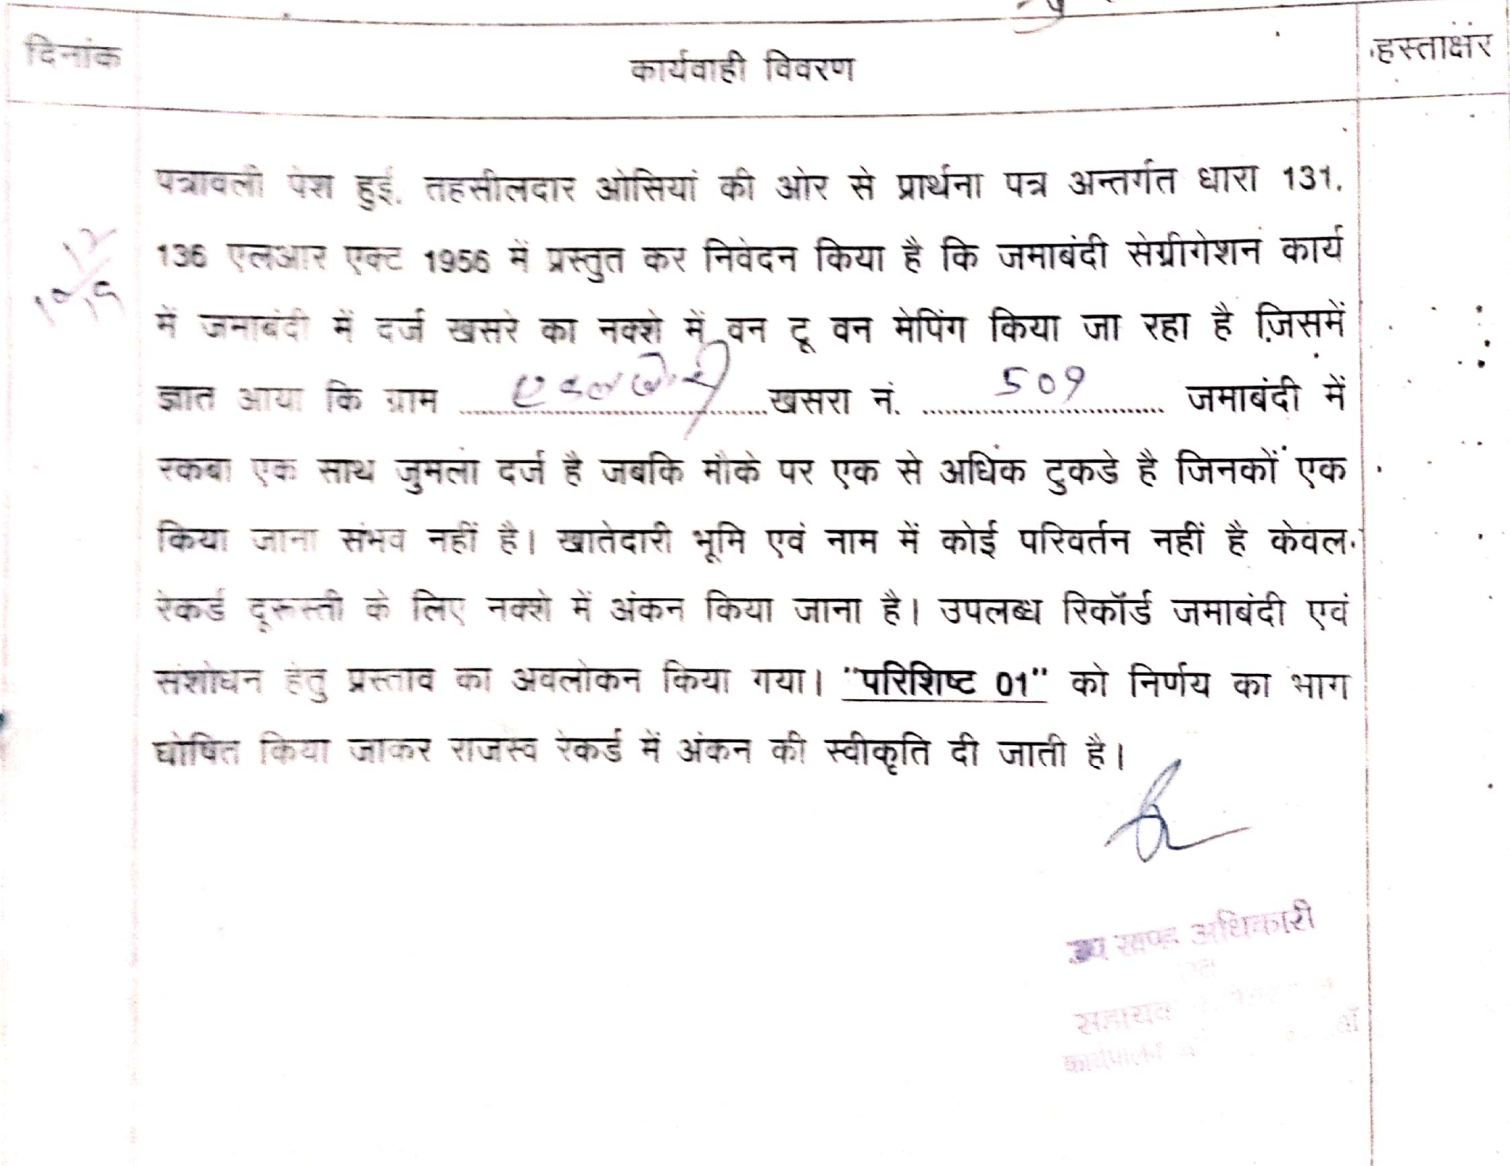 दिनांक
कार्यवाही विवरण
हस्ताक्षर
पत्रावली पेश हुई. तहसीलदार ओसियां की ओर से प्रार्थना पत्र अन्तर्गत धारा 131,
136 एलआर एक्ट 1956 में प्रस्तुत कर निवेदन किया है कि जमाबंदी सेग्रीगेशन कार्य
में जमाबंदी में दर्ज खसरे का नक्शे में वन टू वन मेपिंग किया जा रहा है जिसमें
ज्ञात आया कि ग्राम ........ खसरा नं. 509 जमाबंदी में
रकबा एक साथ जुमला दर्ज है जबकि मौके पर एक से अधिक टुकडे है जिनकों एक
किया जाना संभव नहीं है। खातेदारी भूमि एवं नाम में कोई परिवर्तन नहीं है केवल
रेकर्ड दूरूस्ती के लिए नक्शे में अंकन किया जाना है। उपलब्ध रिकॉर्ड जमाबंदी एवं
संशोधन हेतु प्रस्ताव का अवलोकन किया गया। "परिशिष्ट 01" को निर्णय का भाग
घोषित किया जाकर राजस्व रेकर्ड में अंकन की स्वीकृति दी जाती है।
उप खण्ड अधिकारी
सहायक